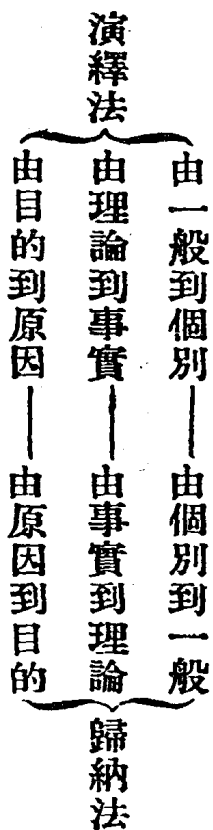 演繹法
由一般到個別——由個別到一般
由理論到事實——由事實到理論
由目的到原因——由原因到目的
歸納法